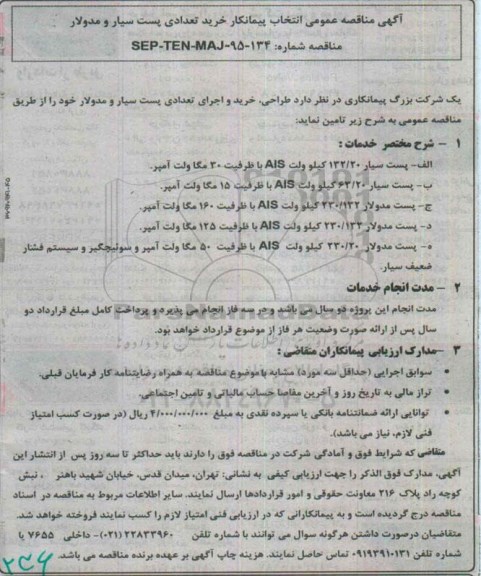 آگهی مناقصه عمومی انتخاب پیمانکار خرید تعدادی پست سیار و مدولار
مناقصه شماره: SEP-TEN-MAJ-۹۵-۱۳۴
یک شرکت بزرگ پیمانکاری در نظر دارد طراحی، خرید و اجرای تعدادی پست سیار و مدولار خود را از طریق
مناقصه عمومی به شرح زیر تامین نماید:
۱ – شرح مختصر خدمات :
الف- پست سیار ۱۳۲/۲۰ کیلو ولت AIS با ظرفیت ۳۰ مگا ولت آمپر.
ب- پست سیار ۶۳/۲۰ کیلو ولت AIS با ظرفیت ۱۵ مگا ولت آمپر.
ج- پست مدولار ۲۳۰/۱۳۲ کیلو ولت AIS با ظرفیت ۱۶۰ مگا ولت آمپر.
د- پست مدولار ۲۳۰/۱۳۲ کیلو ولت AIS با ظرفیت ۱۲۵ مگا ولت آمپر.
ه- پست مدولار ۲۳۰/۲۰ کیلو ولت AIS با ظرفیت ۵۰ مگا ولت آمپر و سوئیچگیر و سیستم فشار
ضعیف سیار.
۲ – مدت انجام خدمات
مدت انجام این پروژه دو سال می باشد و در سه فاز انجام می پذیرد و پرداخت کامل مبلغ قرارداد دو
سال پس از ارائه صورت وضعیت هر فاز از موضوع قرارداد خواهد بود.
۳ –مدارک ارزیابی پیمانکاران متقاضی :
• سوابق اجرایی (حداقل سه مورد) مشابه با موضوع مناقصه به همراه رضایتنامه کار فرمایان قبلی.
• تراز مالی به تاریخ روز و آخرین مفاصا حساب مالیاتی و تامین اجتماعی.
• توانایی ارائه ضمانتنامه بانکی یا سپرده نقدی به مبلغ ۴/۰۰۰/۰۰۰/۰۰۰ ریال (در صورت کسب امتیاز
فنی لازم، نیاز می باشد).
متقاضی که شرایط فوق و آمادگی شرکت در مناقصه فوق را دارند باید حداکثر تا سه روز پس از انتشار این
آگهی، مدارک فوق الذکر را جهت ارزیابی کیفی به نشانی: تهران، میدان قدس، خیابان شهید باهنر ، نبش
کوچه راد پلاک ۲۱۶ معاونت حقوقی و امور قراردادها ارسال نمایند. سایر اطلاعات مربوط به مناقصه در اسناد
مناقصه درج گردیده است و به پیمانکارانی که در ارزیابی فنی امتیاز لازم را کسب نمایند فروخته خواهد شد.
متقاضیان درصورت داشتن هرگونه سوال می توانند با شماره تلفن ۲۲۸۳۳۹۶۰ (۰۲۱)- داخلی ۷۶۵۵ یا
شماره تلفن ۰۹۱۹۳۹۱۰۱۳۱ تماس حاصل نمایند. هزینه چاپ آگهی بر عهده برنده مناقصه می باشد.